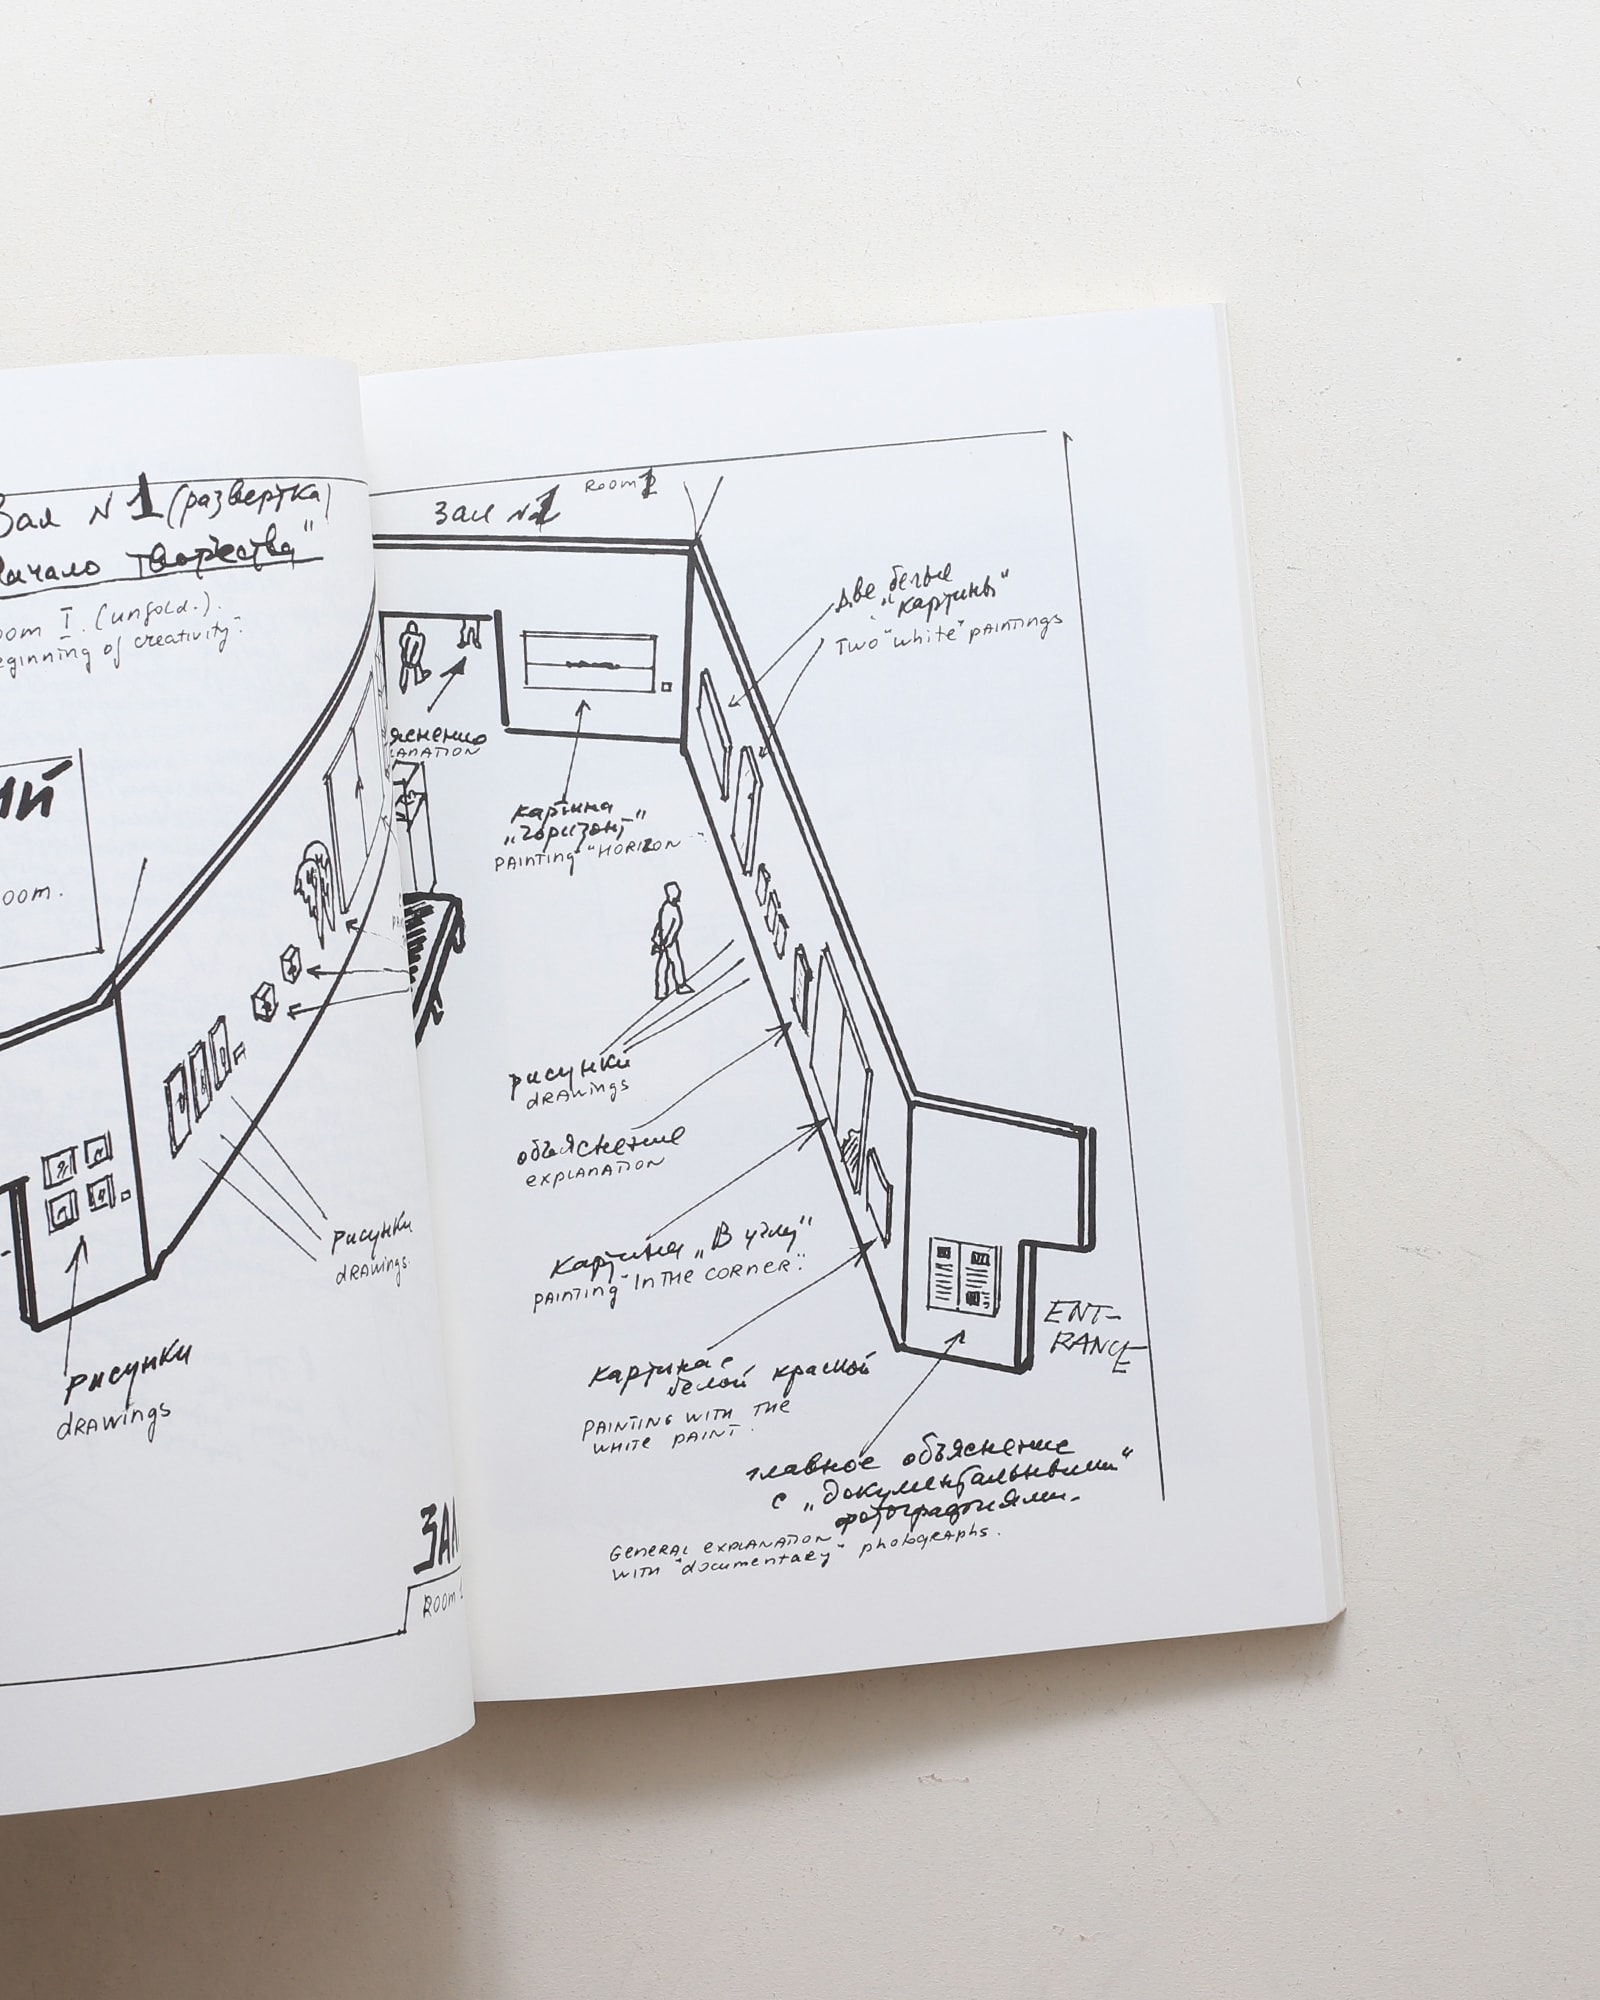 Зал N 1 (развертка)
Начало творчества"
oom I. (unfold.).
eginning of creativity".
ий
oom.
рисунки
drawings.
рисунки
drawings
ЗАЛ
ROOM 1
Зал № 1 Room 1
две белые
"картины"
TWO "white" PAINTINGS
яснению
LANATION
картина
„горизонт"
PAINTING "HORIZON"
рисунки
drawings
объяснение
explanation
картина „В углу"
PAINTING "IN THE CORNER".
картина с
белой краской
PAINTING WITH THE
WHITE PAINT.
ENT-
RANCE
главное объяснение
с „документальными"
фотографиями.
GENERAL EXPLANATION
WITH "documentary" photographs.